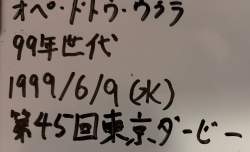 オペ・ドトウ・ウララ
99年世代
1999/6/9(水)
第45回東京ダービー